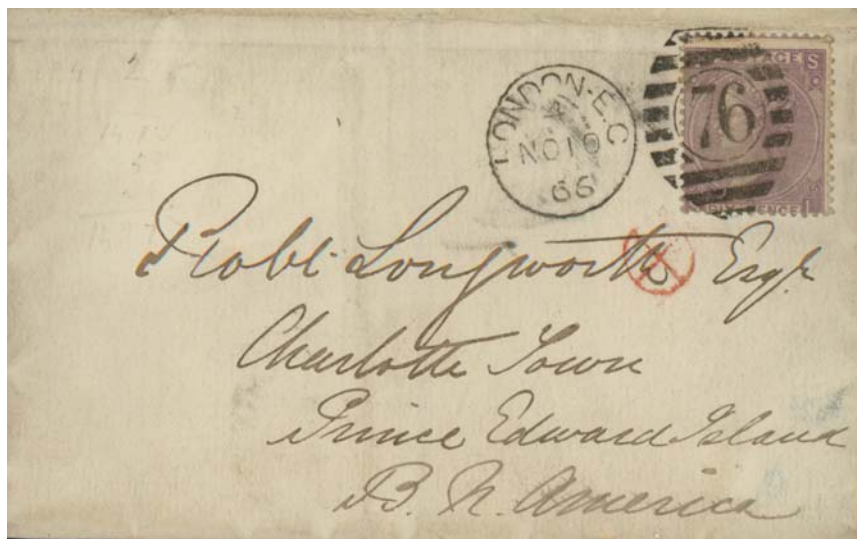 LONDON-E.C
A
NO10
66
76
S
SIX PENCE L
Robt. Longworth Esqr
Charlotte Town
Prince Edward Island
B. N. America